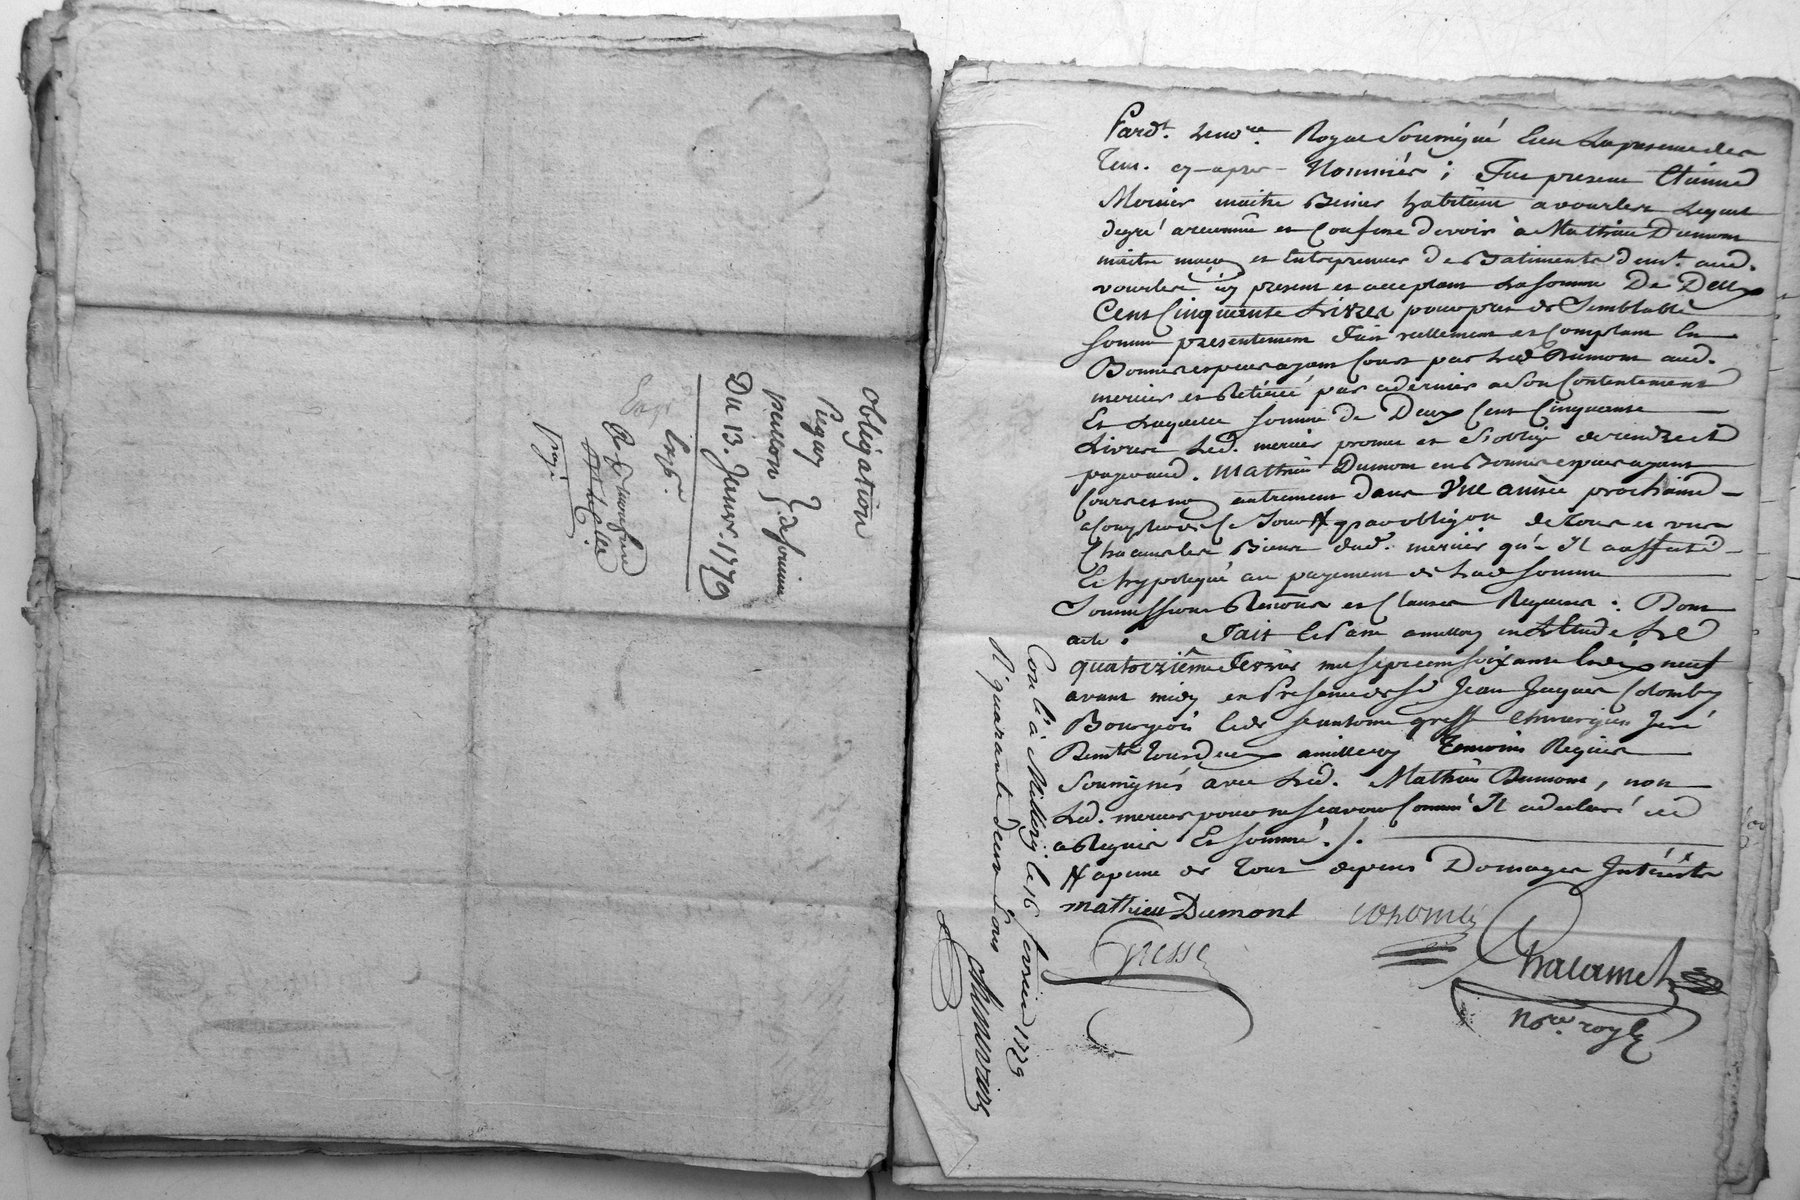 Obligation
Peguy
peillon
Du 13. Janvr. 1779
payé
Pardt. Leno.re Royal Soussigné Een La presence des
Tem. cy-apres Nommés ; Fut present Etienne
Mercier maitre habitant a vourles Lequel
degré a reconnu et Confessé devoir à Mathieu Dumont
maitre maçon et Entrepreneur de Batiments demt. aud.
vourles icy present et acceptant La somme De Deux
Cent Cinquante Livres pour prest de Semblable
somme presentement fait reellement et Comptant En
Bonnes especes ayant Cours par Led. Dumont aud.
mercier et Retirée par ce dernier a son Contentement
Et Laquelle somme de Deux Cent Cinquante
Livres Led. mercier promet et s'oblige de rendre et
payer aud. Mathieu Dumont en Bonnes especes ayant
Cours et non autrement dans Une année prochaine
a Compter de Ce Jour # par obligon. de tous et uns
Chacuns les Biens dud. mercier qu'Il a affecté
Et hypotequé au payement de Lad. somme
Soumissions Renons et Clauses Requises : Dont
acte. Fait Et Passé a millery en L'Etude Le
quatorzième Fevrier mil sept cent soixante Et dix neuf
avant midy en Presence de Sr. Jean Jaques Colomby
Bourgeois Et de Sr. antoine gresse Chirurgien Juré
Demts. tous deux a millery Temoins Requis
Soussignés avec Led. Mathieu Dumont, non
Led. mercier pour ne sçavoir Comme Il a declaré de ce
a Requis Et sommé. /.
# a peine de tous depens Domages Intérêts
mathieu Dumont
Gresse
Chalamet
No.re royl
Con.lé à Millery le 16 fevrier 1779
R. quarante deux sous